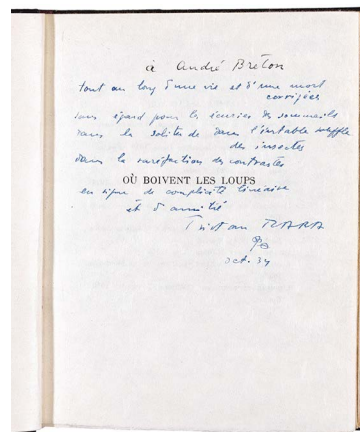 à André Breton
tout au long d'une vie et d'une mort
corrigées
sans égard pour les écuries de sommeils
dans la solitude dans l'instable souffle
des insectes
dans la raréfaction des contrastes
OÙ BOIVENT LES LOUPS
en signe de complicité linéaire
et d'amitié
Tristan TZARA
oct. 34